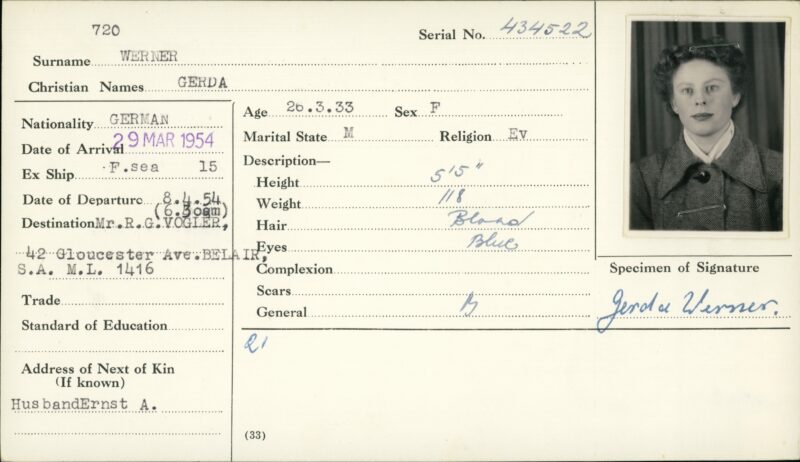 720
Serial No. 434522
Surname WERNER
Christian Names GERDA
Nationality GERMAN
Date of Arrival 29 MAR 1954
Ex Ship F.sea 15
Date of Departure 8.4.54
(6.30am)
Destination Mr.R.G.VOGLER,
42 Gloucester Ave.BELAIR,
S.A. M.L. 1416
Trade
Standard of Education
Address of Next of Kin
(If known)
HusbandErnst A.
Age 26.3.33 Sex F
Marital State M Religion Ev
Description—
Height 5'5"
Weight 118
Hair Blond
Eyes Blue
Complexion
Scars
General
21
(33)
Specimen of Signature
Gerda Werner.